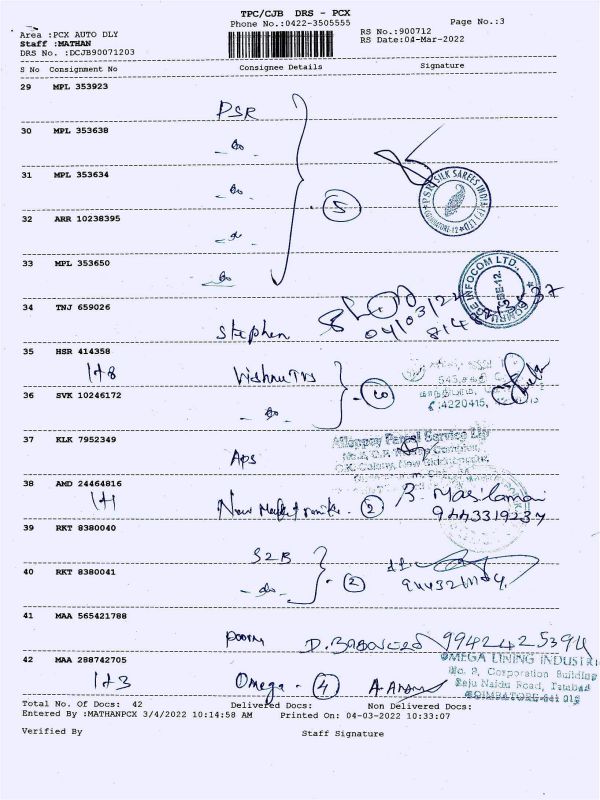 TPC/CJB DRS - PCX
Phone No.:0422-3505555
Page No.:3
Area :PCX AUTO DLY
RS No.:900712
Staff :MATHAN
RS Date:04-Mar-2022
DRS No. :DCJB90071203
S No Consignment No Consignee Details Signature
29 MPL 353923
PSR
30 MPL 353638
- do -
31 MPL 353634
- do -
5
PSR SILK SAREES INDIA (P) LTD
COIMBATORE-12
32 ARR 10238395
- do -
33 MPL 353650
- do -
INFOCOM LTD.,
CBE-12.
34 TNJ 659026
Stephen
04/03/22
35 HSR 414358
1+8
Vishnu TVS
36 SVK 10246172
- do -
10
:4220415,
37 KLK 7952349
Aps
Alleppey Parcel Service
38 AMD 24464816
1+1
New
2
B. Masilamani
9443319237
39 RKT 8380040
S2B
40 RKT 8380041
- do -
2
41 MAA 565421788
42 MAA 288742705
1+3
Omega -
4
OMEGA LINING INDUSTRI
No. 9, Corporation Building
Raju Naidu Road, Tatabad
COIMBATORE-641 012
Total No. Of Docs: 42 Delivered Docs: Non Delivered Docs:
Entered By :MATHANPCX 3/4/2022 10:14:58 AM Printed On: 04-03-2022 10:33:07
Verified By Staff Signature